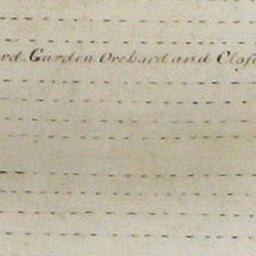 rd. Garden Orchard and Clos